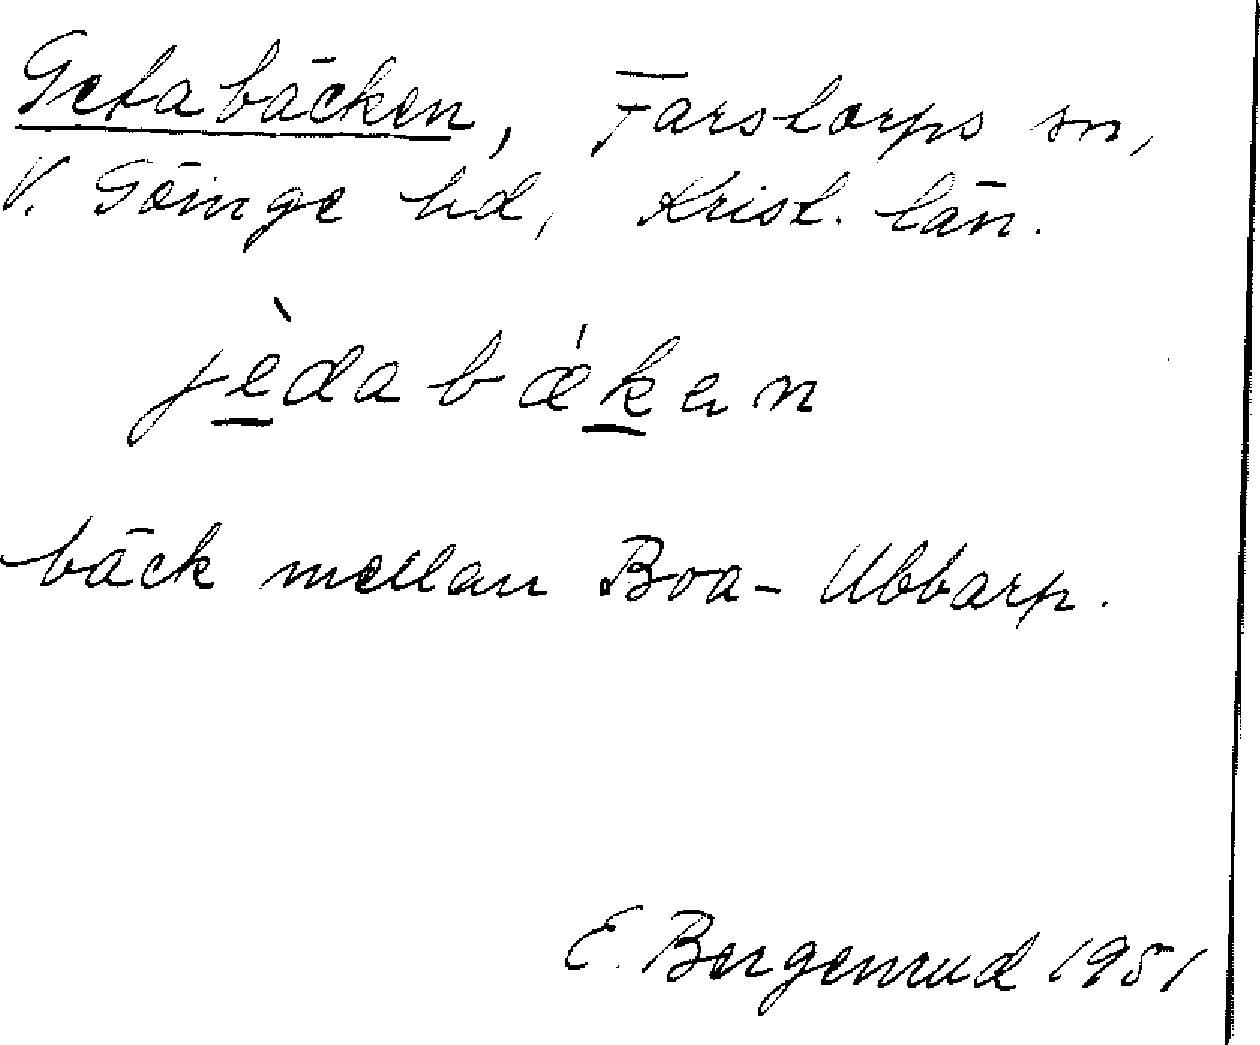 Getabäcken, Farstorps sn,
V. Göinge hd, Krist. län.
jèdabǽkan
bäck mellan Boa - Ubbarp.
E. Bergenrud 1951